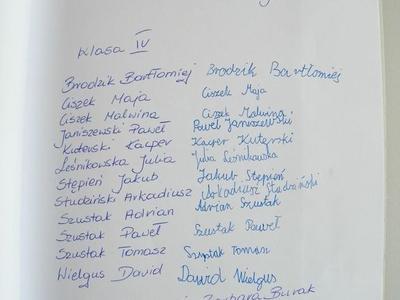 Klasa IV
Brodzik Bartłomiej Brodzik Bartłomiej
Ciszek Maja Ciszek Maja
Ciszek Malwina Ciszek Malwina
Janiszewski Paweł Paweł Janiszewski
Kuterski Kacper Kacper Kuterski
Leśnikowska Julia Julia Leśnikowska
Stępień Jakub Jakub Stępień
Studziński Arkadiusz Arkadiusz Studziński
Szustak Adrian Adrian Szustak
Szustak Paweł Szustak Paweł
Szustak Tomasz Szustak Tomasz
Wielgus David David Wielgus
Barbara Burak